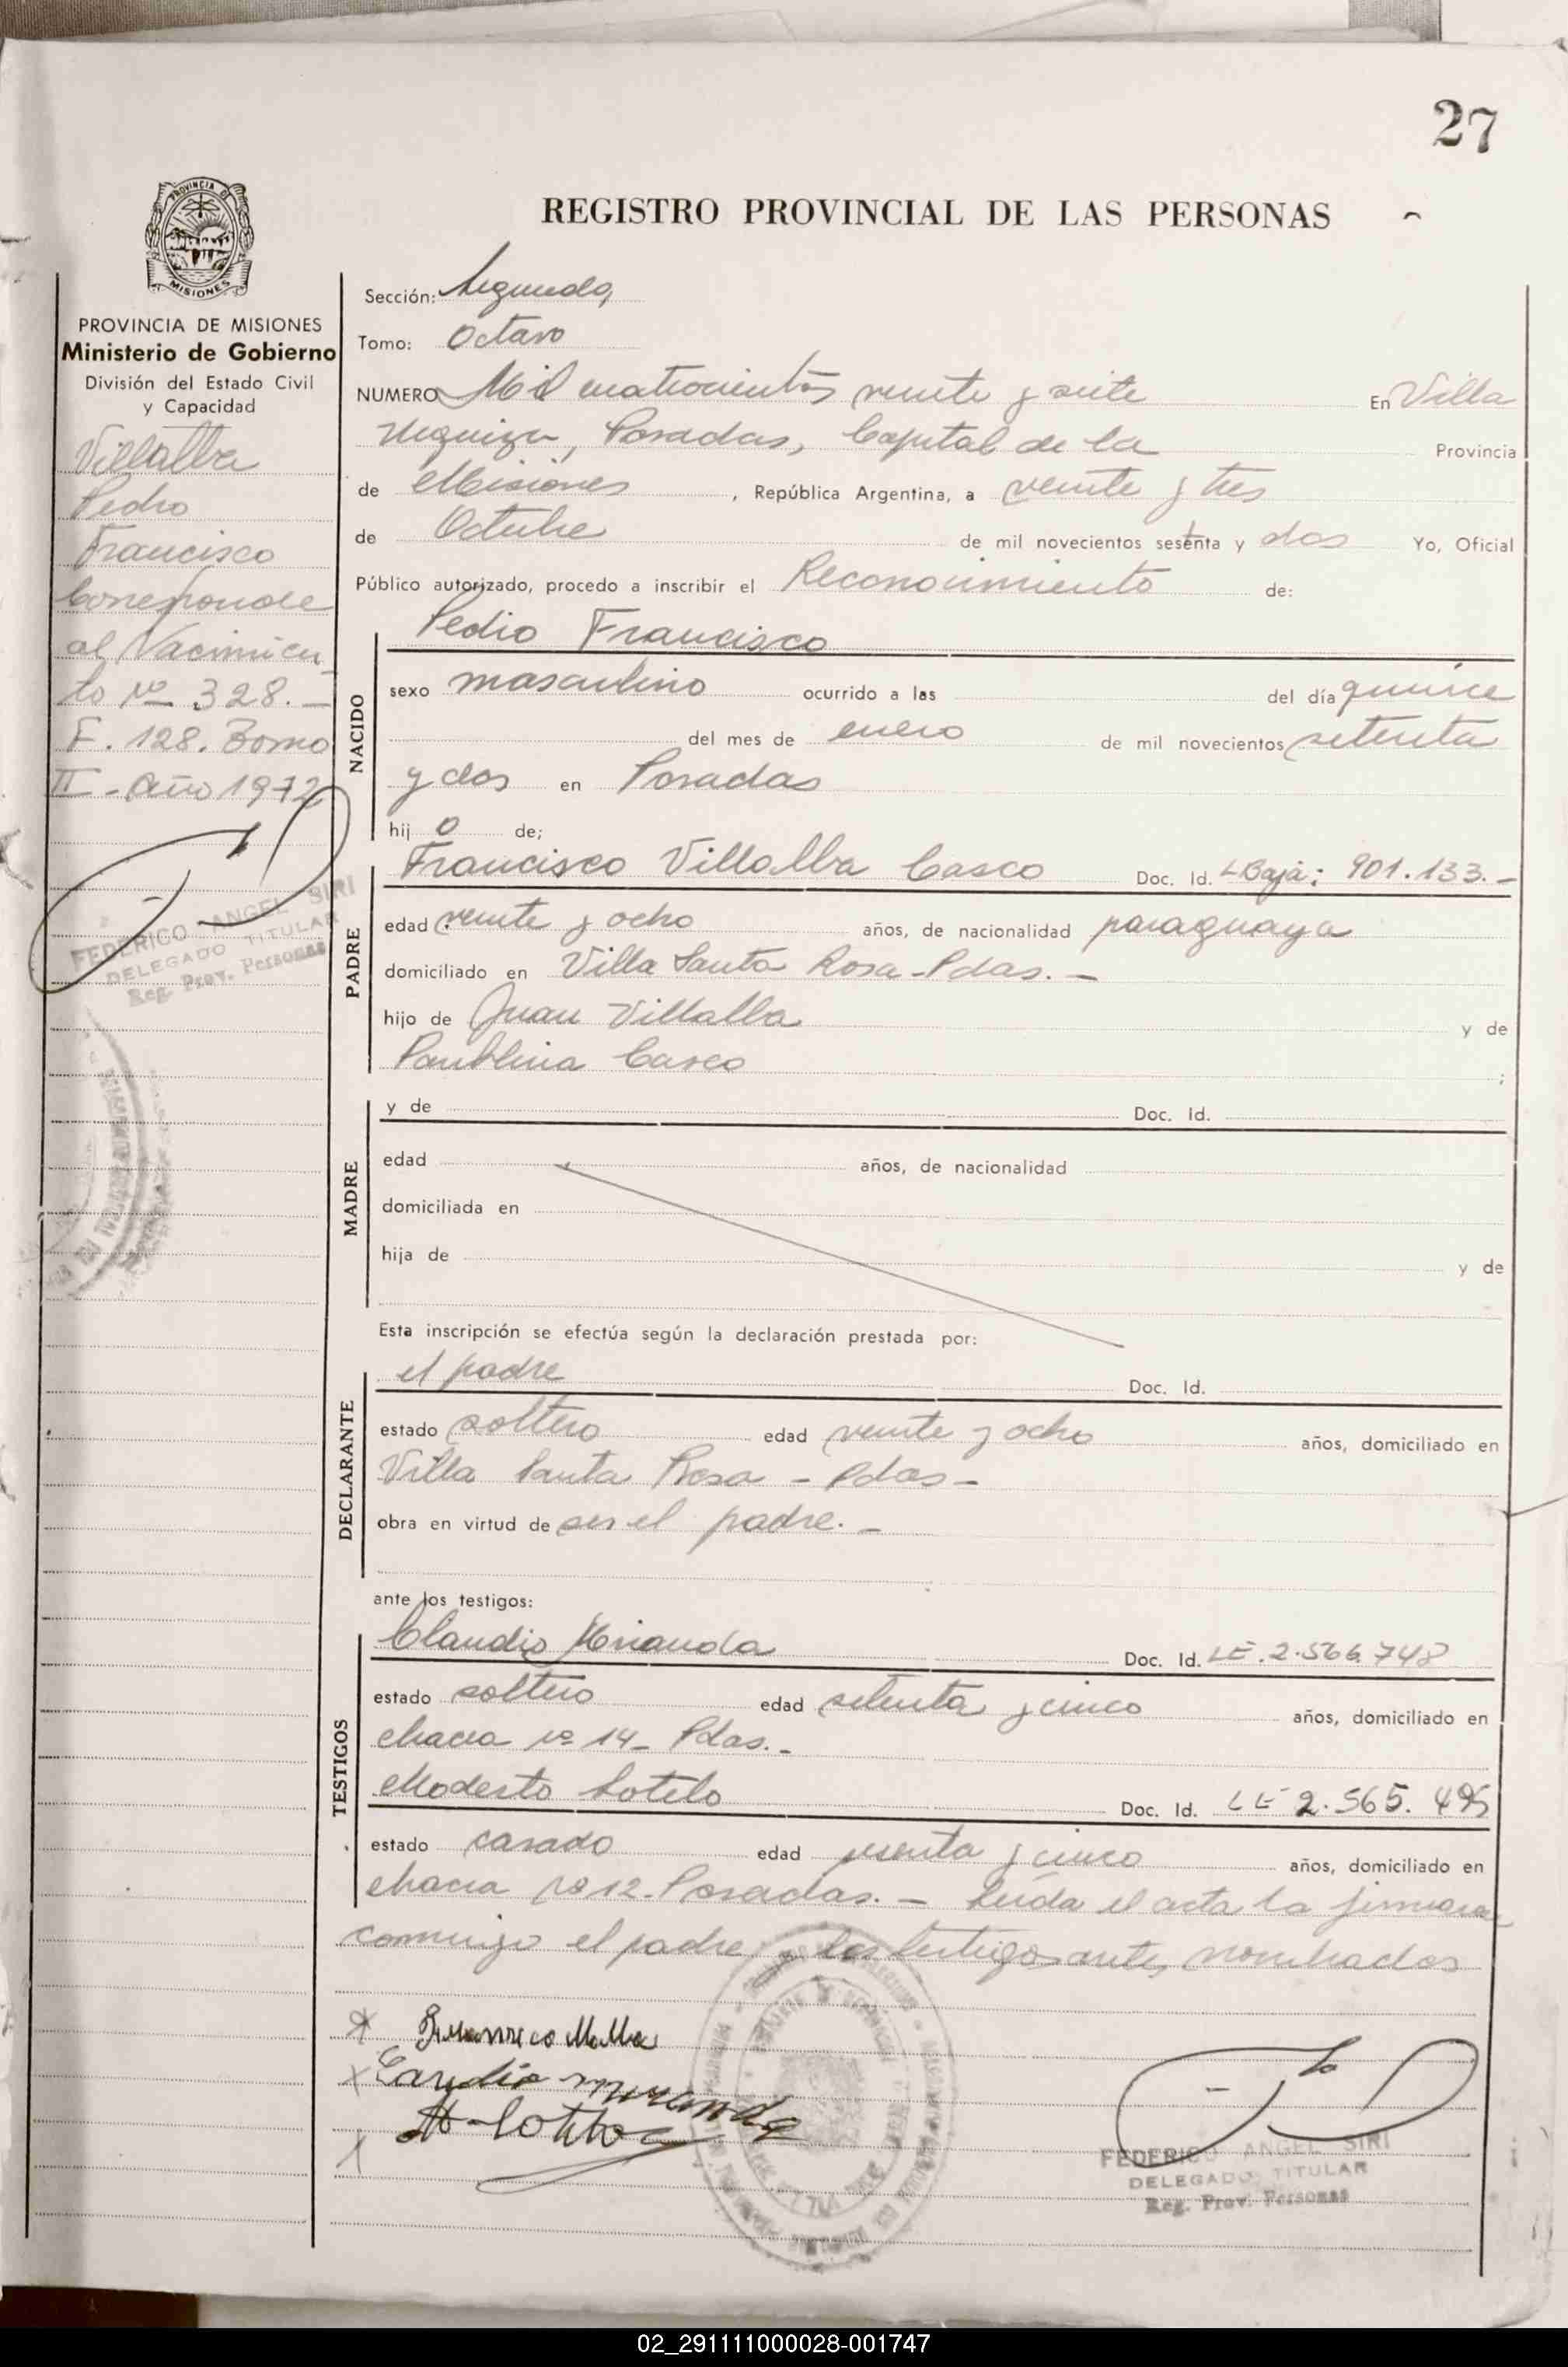 27
PROVINCIA DE
MISIONES
REGISTRO PROVINCIAL DE LAS PERSONAS
PROVINCIA DE MISIONES
Ministerio de Gobierno
División del Estado Civil
y Capacidad
Villalba
Pedro
Francisco
Corresponde
al Nacimien
to nº 328.-
F. 128. Tomo
II - Año 1972
FEDERICO ANGEL SIRI
DELEGADO TITULAR
Reg. Prov. Personas
Sección: Segunda
Tomo: Octavo
NUMERO Mil cuatrocientos veinte y siete En Villa
Urquiza, Posadas, Capital de la Provincia
de Misiones, República Argentina, a veinte y tres
de Octubre de mil novecientos sesenta y dos Yo, Oficial
Público autorizado, procedo a inscribir el Reconocimiento de:
NACIDO
Pedro Francisco
sexo masculino ocurrido a las del día quince
del mes de enero de mil novecientos setenta
y dos en Posadas
hij o de;
PADRE
Francisco Villalba Casco Doc. Id. L Baja: 901.133.-
edad veinte y ocho años, de nacionalidad paraguaya
domiciliado en Villa Santa Rosa - Pdas. -
hijo de Juan Villalba y de
Paublina Casco ;
MADRE
y de Doc. Id.
edad años, de nacionalidad
domiciliada en
hija de y de
Esta inscripción se efectúa según la declaración prestada por:
DECLARANTE
el padre Doc. Id.
estado soltero edad veinte y ocho años, domiciliado en
Villa Santa Rosa - Pdas -
obra en virtud de ser el padre. -
ante los testigos:
TESTIGOS
Claudio Miranda Doc. Id. LE. 2.566.748
estado soltero edad setenta y cinco años, domiciliado en
chacra nº 14 - Pdas. -
Modesto Sotelo Doc. Id. LE 2.565.495
estado casado edad sesenta y cinco años, domiciliado en
chacra nº 12 - Posadas. - Leída el acta la firman
conmigo el padre y los testigos antes nombrados
FEDERICO ANGEL SIRI
DELEGADO TITULAR
Reg. Prov. Personas
02_291111000028-001747